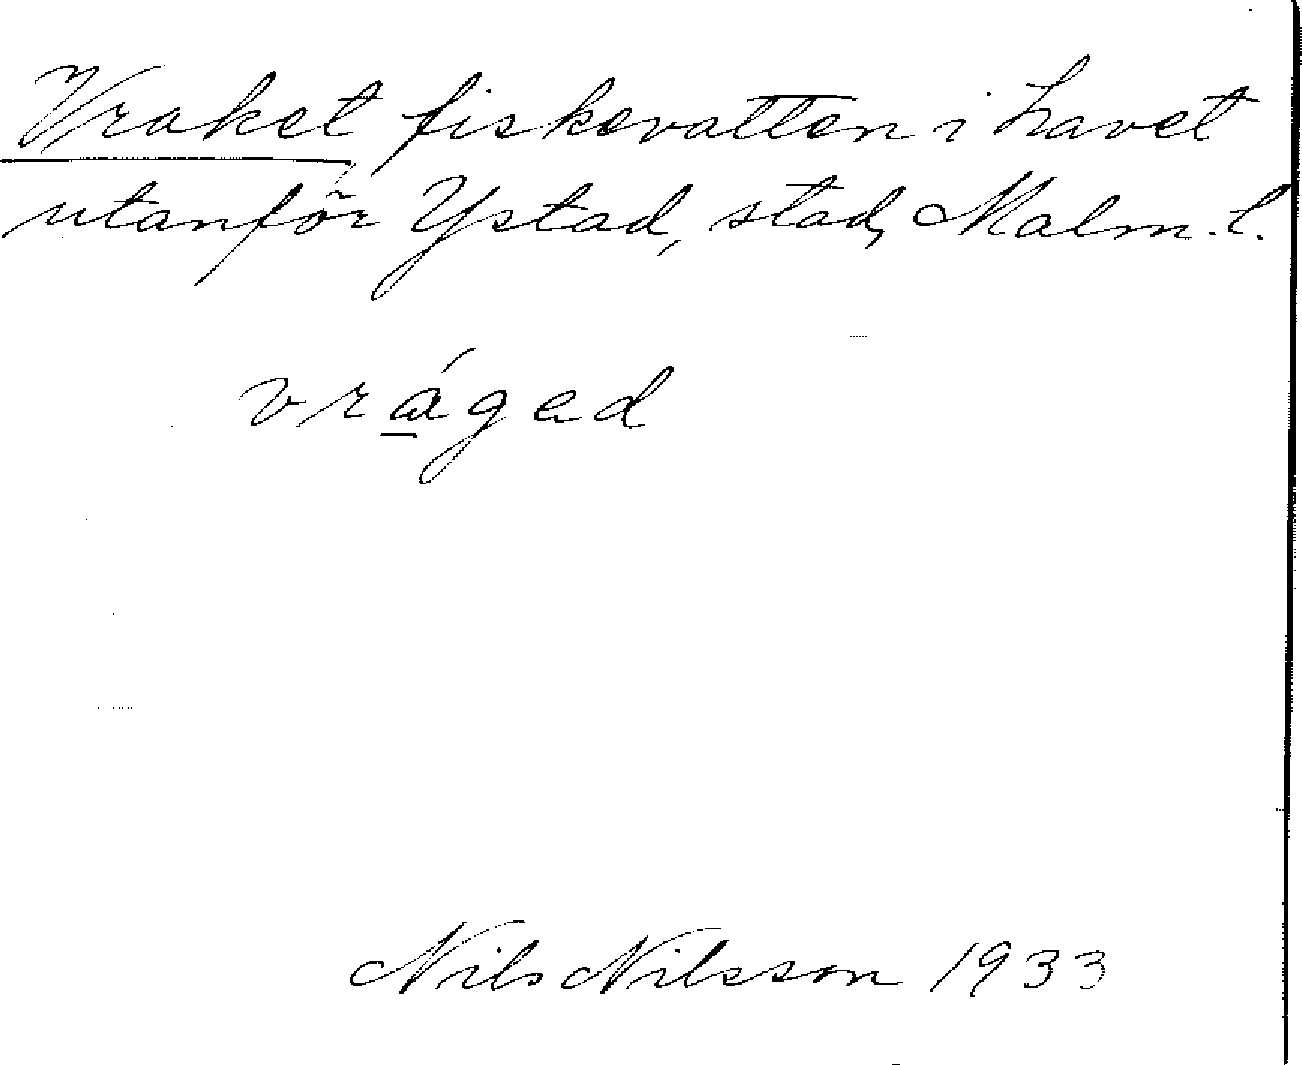 Vraket, fiskevatten i havet
utanför Ystad, stad, Malm. l.
vrågad
Nils Nilsson 1933